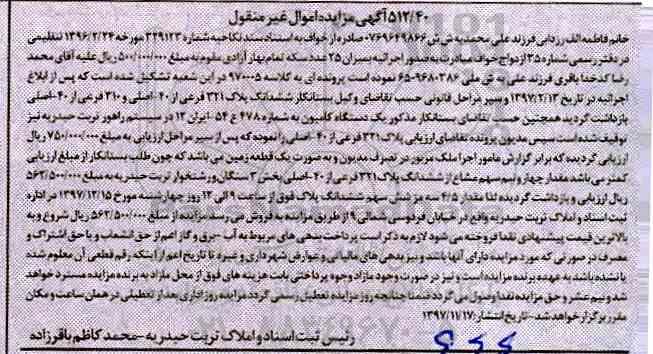 ۵۱۲/۴۰ آگهی مزایده اموال غیر منقول
خانم فاطمه الف زردابی فرزند علی محمد به ش ش ۰۷۶۹۶۴۹۸۶۶ صادره از خواف به استناد سند نکاحیه شماره ۳۲۹۱۲۳ مورخه ۱۳۹۶/۲/۲۴ تنظیمی
در دفتر رسمی شماره ۳۵ ازدواج خواف مبادرت به صدور اجرائیه بمیزان ۲۵ عدد سکه تمام بهار آزادی مقوم به مبلغ ۵۰۰/۰۰۰/۰۰۰ ریال علیه آقای محمد
رضا کدخدا باقری فرزند علی به ش ملی ۶۵۰۹۶۸۰۳۸۶ نموده است پرونده ای به کلاسه ۹۷۰۰۰۵ در این شعبه تشکیل شده است که پس از ابلاغ
اجرائیه در تاریخ ۱۳۹۷/۲/۱۳ و سیر مراحل قانونی حسب تقاضای وکیل بستانکار ششدانگ پلاک ۳۲۱ فرعی از ۴۰- اصلی و ۳۱۰ فرعی از ۴۰- اصلی
بازداشت گردید همچنین حسب تقاضای بستانکار مذکور یک دستگاه کامیون به شماره ۴۷۸ ع ۵۴- ایران ۱۲ در سیستم راهور تربت حیدریه نیز
توقیف شده است سپس مدیون پرونده تقاضای ارزیابی پلاک ۳۲۱ فرعی از ۴۰- اصلی را نموده که پس از سیر مراحل ارزیابی به مبلغ ۷۵۰/۰۰۰/۰۰۰ ریال
ارزیابی گردیده که برابر گزارش مامور اجرا ملک مزبور در تصرف مدیون و به صورت یک قطعه زمین می باشد که چون طلب بستانکار از مبلغ ارزیابی
کمتر می باشد مقدار چهار و نیم سهم مشاع از ششدانگ پلاک ۳۲۱ فرعی از ۴۰- اصلی بخش ۳ سنگان و رشتخوار تربت حیدریه به مبلغ ۵۶۲/۵۰۰/۰۰۰
ریال ارزیابی و بازداشت گردیده لذا مقدار ۴/۵ سهم از شش سهم ششدانگ پلاک فوق از ساعت ۹ الی ۱۲ روز چهارشنبه مورخ ۱۳۹۷/۱۲/۱۵ در اداره
ثبت اسناد و املاک تربت حیدریه واقع در خیابان فردوسی شمالی ۹ از طریق مزایده به فروش می رسد مزایده از مبلغ ۵۶۲/۵۰۰/۰۰۰ ریال شروع و به
بالاترین قیمت پیشنهادی نقدا فروخته می شود لازم به ذکر است پرداخت بدهی های مربوط به آب - برق و گاز اعم از حق انشعاب و یا حق اشتراک و
مصرف در صورتی که مورد مزایده دارای آنها باشد و نیز بدهی های مالیاتی و عوارض شهرداری و غیره تا تاریخ اعم از اینکه رقم قطعی آن معلوم شده
یا نشده باشد به عهده برنده مزایده است و نیز در صورت وجود مازاد وجوه پرداختی بابت هزینه های فوق از محل مازاد به برنده مزایده مسترد خواهد
شد و نیم عشر و حق مزایده نقدا وصول می گردد ضمنا چنانچه روز مزایده تعطیل رسمی گردد مزایده روز اداری بعد از تعطیلی در همان ساعت و مکان
مقرر برگزار خواهد شد - تاریخ انتشار: ۱۳۹۷/۱۱/۱۷
رئیس ثبت اسناد و املاک تربت حیدریه - محمد کاظم باقرزاده